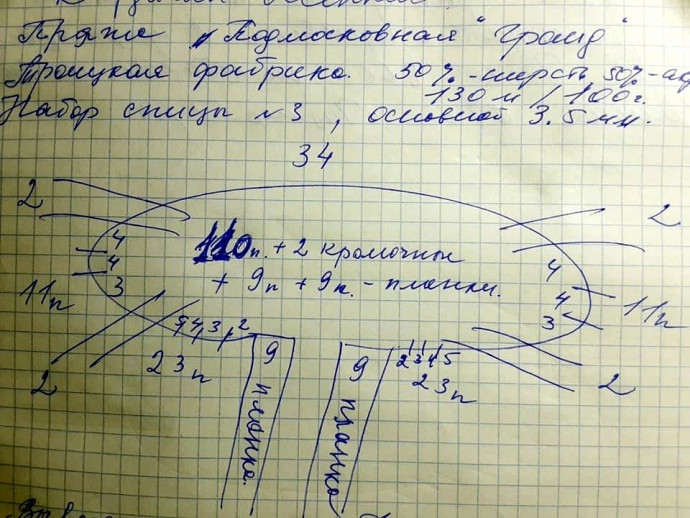 Пряжа "Подмосковная" "Гранд"
Троицкая фабрика. 50% -шерсть 50%-ак
130 м / 100г.
Набор спицы №3, основной 3.5 мм.
34
2
2
4
4
3
11п
110п. + 2 кромочные
+ 9п + 9п. - планки.
4
4
3
11п
4 3 2
23п
9
планка
9
планка
2 3 4 5
23п
2
2